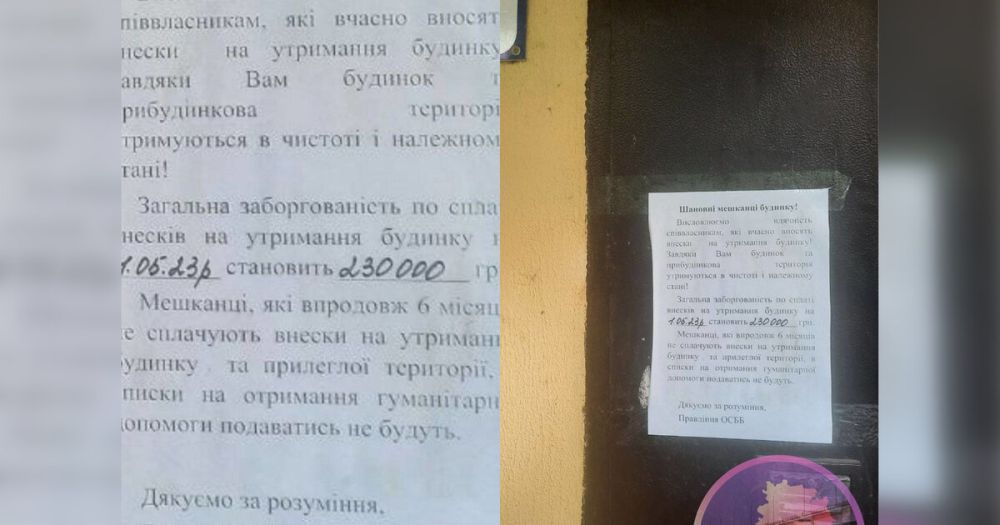 півввласникам, які вчасно вносят
нески на утримання будинку
авдяки Вам будинок т
рибудинкова територі
тримуються в чистоті і належном
тані!
Загальна заборгованість по спла
несків на утримання будинку н
1.05.23р становить 230000 гр
Мешканці, які впродовж 6 місяц
е сплачують внески на утриманн
удинку та прилеглої території,
писки на отримання гуманітарн
опомоги подаватись не будуть.
Дякуємо за розуміння,
Шановні мешканці будинку!
Висловлюємо вдячність
співвласникам, які вчасно вносять
внески на утримання будинку!
Завдяки Вам будинок та
прибудинкова територія
утримуються в чистоті і належному
стані!
Загальна заборгованість по сплаті
внесків на утримання будинку на
1.05.23р становить 230000 грн.
Мешканці, які впродовж 6 місяців
не сплачують внески на утримання
будинку та прилеглої території, в
списки на отримання гуманітарної
допомоги подаватись не будуть.
Дякуємо за розуміння,
Правління ОСББ